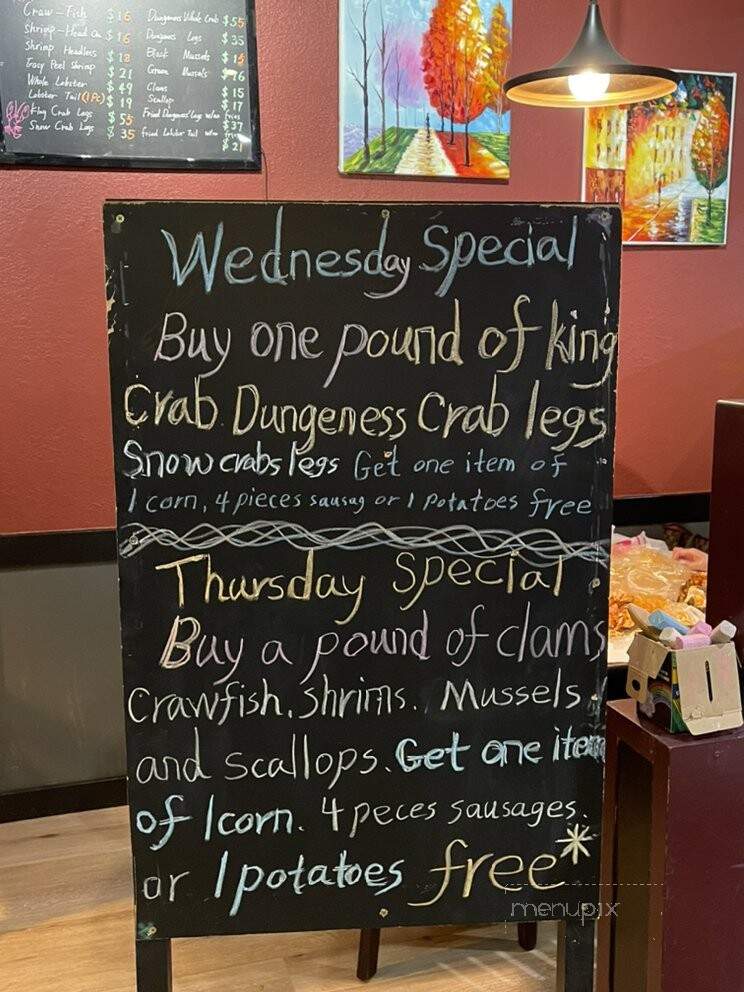 Craw-Fish $16
Shrimp-Head On $16
Shrimp Headless $18
Eacy Peel Shrimp $21
Whole Lobster $49
Lobster Tail (1 Pc) $19
King Crab Legs $55
Snow Crab Legs $35
Dungeness Whole Crab $55
Dungenes Legs $35
Black Mussels $15
Green Mussels $16
Clams $15
Scallop $17
Fried Dungeness Legs w/ fries $37
fried Lobster Tail w/ fries $21
Wednesday Special
Buy one pound of king
Crab Dungeness Crab legs
Snow crabs legs Get one item of
1 corn, 4 pieces sausag or 1 potatoes free
Thursday Special
Buy a pound of clams
Crawfish, shrims. Mussels.
and scallops. Get one item
of 1 corn. 4 peces sausages.
or 1 potatoes free*
menupix